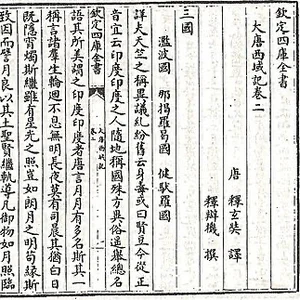 欽定四庫全書
大唐西域記卷二
唐 釋玄奘 譯
釋辯機 撰
濫波國 那揭羅曷國 健馱羅國
三國
詳夫天竺之稱異議紏紛舊云身毒或曰賢豆今從正
音宜云印度印度之人隨地稱國殊方異俗遥舉總名
語其所美謂之印度印度者唐言月月有多名斯其一
欽定四庫全書 大唐西域記 卷二
稱言諸羣生輪廻不息無明長夜莫有司晨其猶白日
既隱宵燭斯繼雖有星光之照豈如朗月之明茍緣斯
致因而譬月良以其土聖賢繼軌導凡御物如月照臨